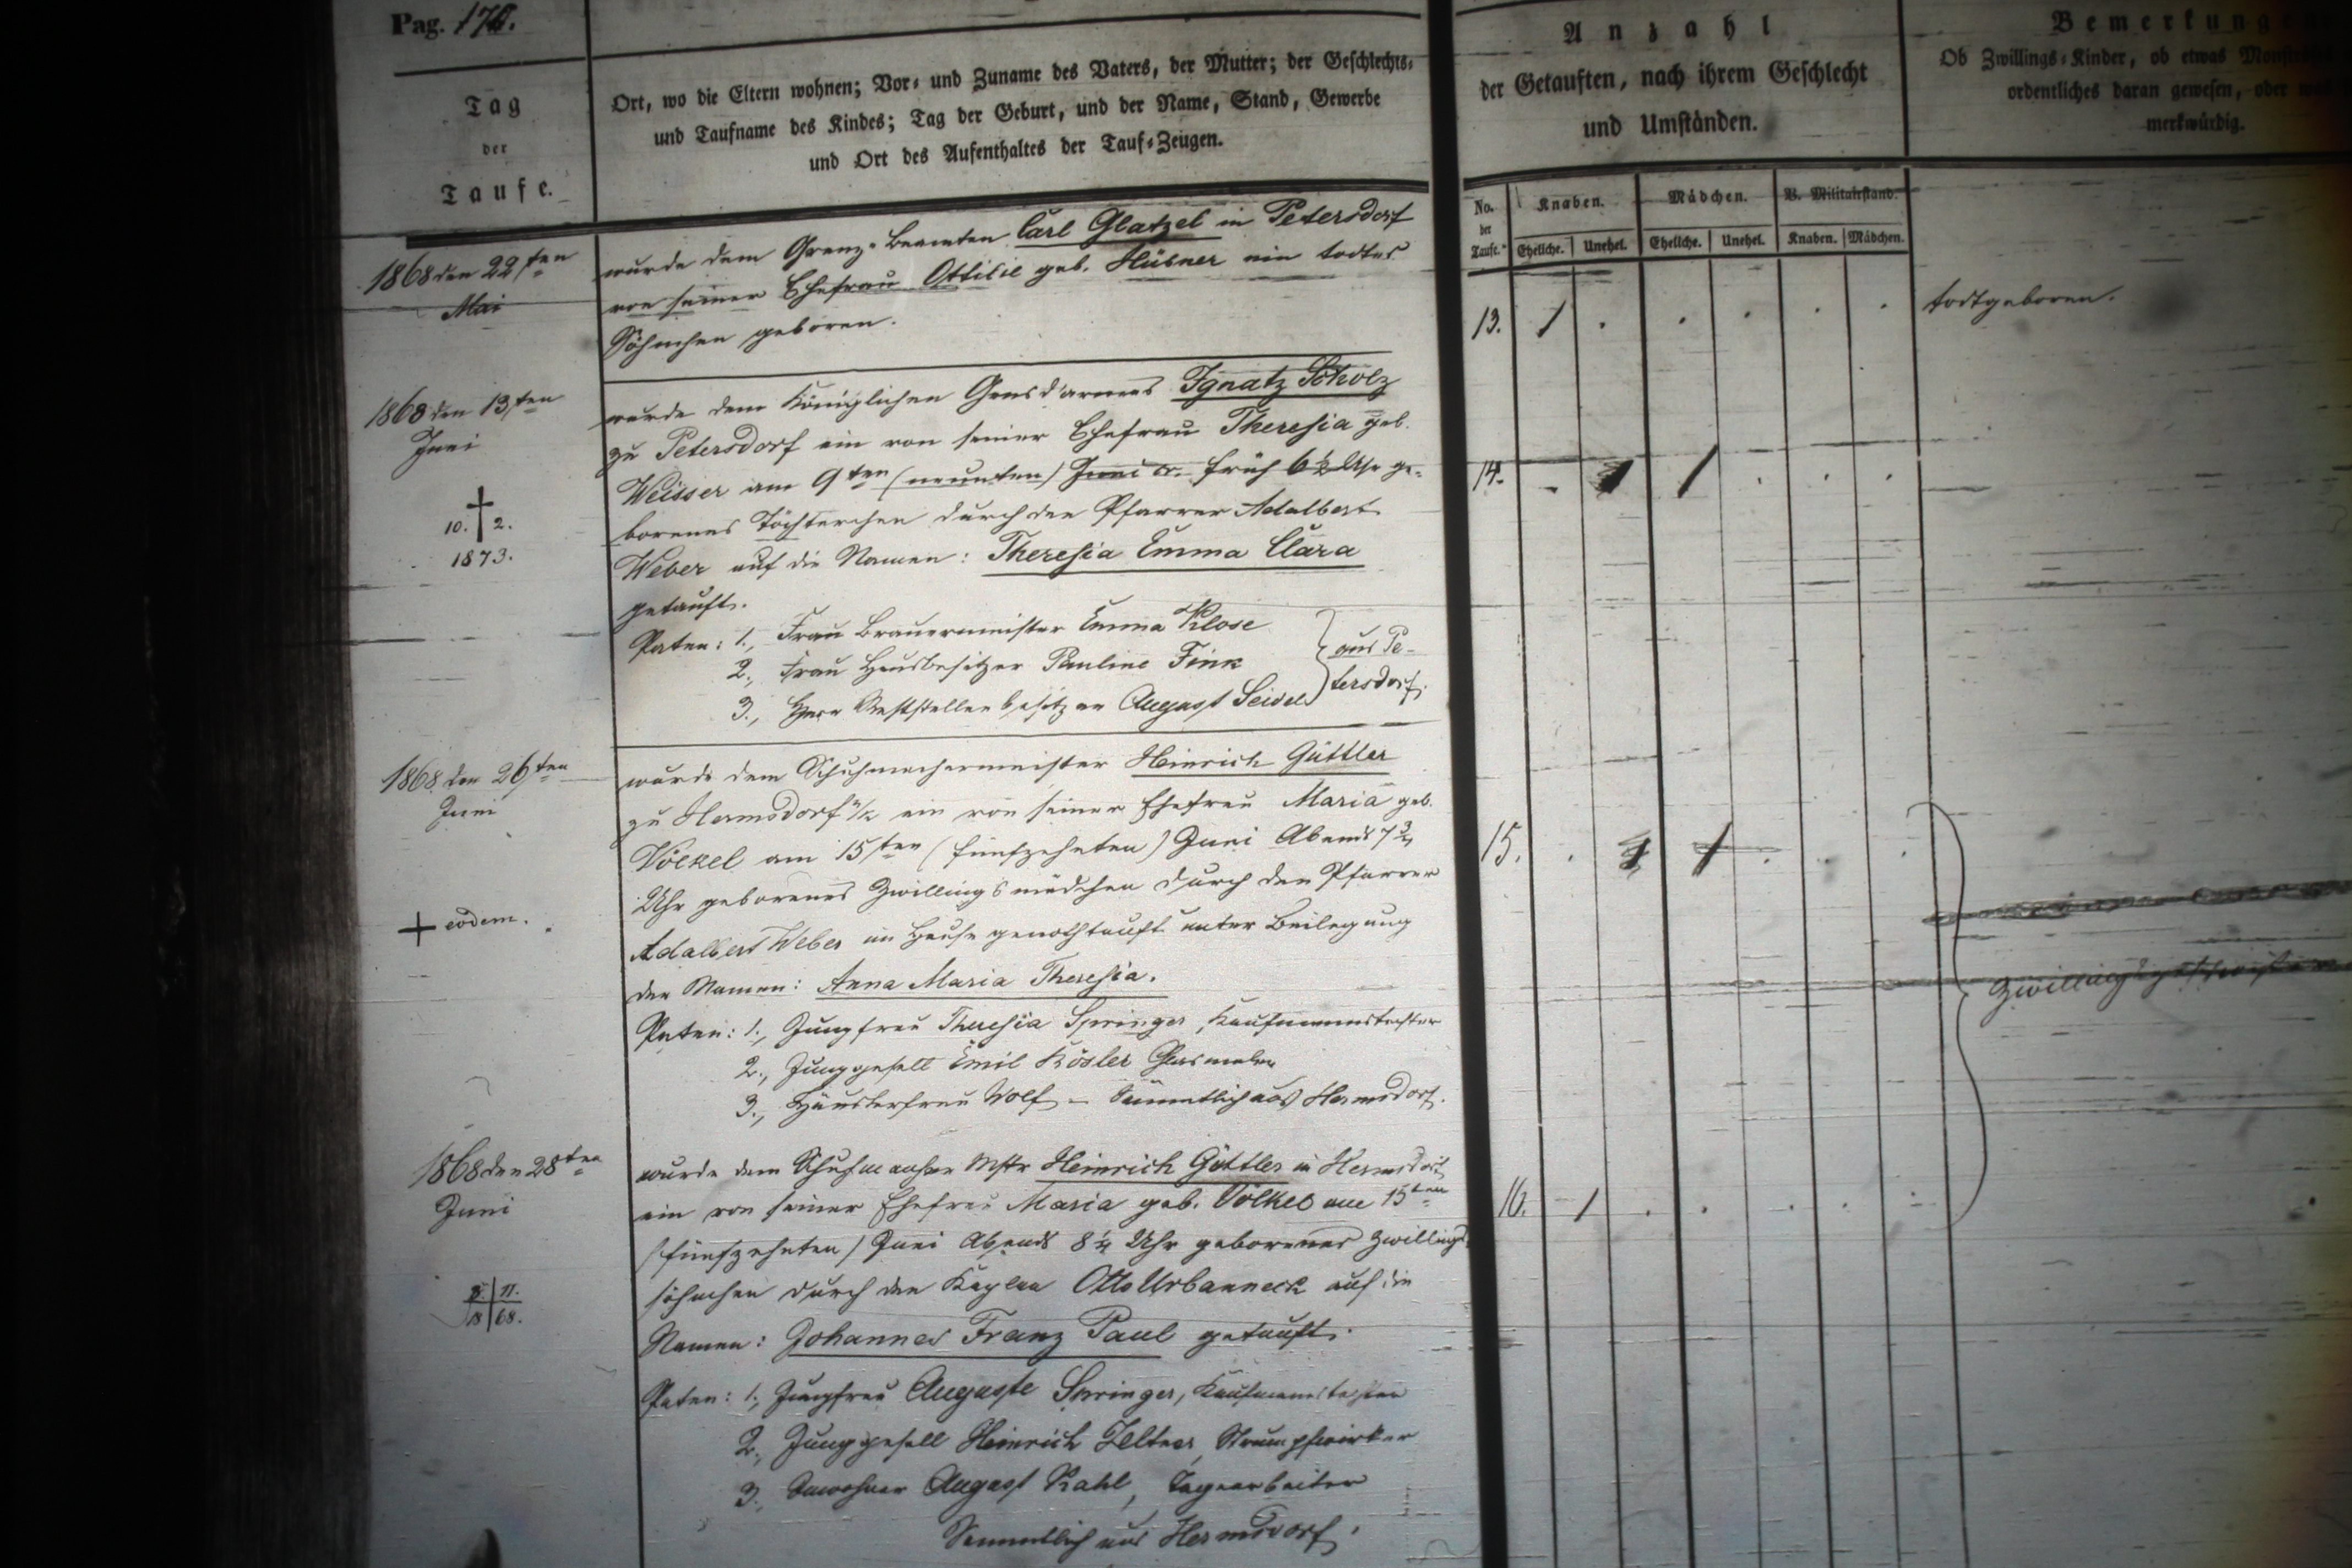 Pag. 176.
Tag
der
Taufe.
Ort, wo die Eltern wohnen; Vor- und Zuname des Vaters, der Mutter; der Geschlechts-
und Taufname des Kindes; Tag der Geburt, und der Name, Stand, Gewerbe
und Ort des Aufenthaltes der Tauf-Zeugen.
Anzahl
der Getauften, nach ihrem Geschlecht
und Umständen.
Bemerkungen
Ob Zwillings-Kinder, ob etwas
ordentliches daran gewesen, oder
merkwürdig.
No. der Taufe.
Knaben. Mädchen. V. Militairstand.
Eheliche. Unehel. Eheliche. Unehel. Knaben. Mädchen.
1868 den 22sten
Mai
wurde dem Grenz-Beamten Carl Glatzel in Petersdorf
von seiner Ehefrau Ottilie geb. Hübner ein todtes
Söhnchen geboren.
13. 1 . . . . .
todtgeboren.
1868 den 13ten
Juni
10. † 2.
1873.
wurde dem Königlichen Gensd'armes Ignatz Scholz
zu Petersdorf ein von seiner Ehefrau Theresia geb.
Weisser am 9ten (neunten) Juni cr. früh 6½ Uhr ge-
borenes Töchterchen durch den Pfarrer Adalbert
Weber auf die Namen: Theresia Emma Clara
getauft.
Paten: 1., Frau Brauermeister Emma Klose
2., Frau Hausbesitzer Pauline Fink
3., Herr Reststellenbesitzer August Seidel
aus Pe-
tersdorf.
14. . 1 . . .
1868 den 26ten
Juni
† eodem.
wurde dem Schuhmachermeister Heinrich Güttler
zu Hermsdorf u/k ein von seiner Ehefrau Maria geb.
Völkel am 15ten (fünfzehnten) Juni Abends 7¾
Uhr geborenes Zwillingsmädchen durch den Pfarrer
Adalbert Weber im Hause genothtauft unter Beilegung
der Namen: Anna Maria Theresia.
Paten: 1., Jungfrau Theresia Springer, Kaufmannstochter
2., Junggesell Emil Kösler Glasmaler
3., Häuslerfrau Wolf – Sämmtlich aus Hermsdorf.
15. . 1 . . .
Zwillingsgeschwister
1868 den 28ten
Juni
8. 11.
18 68.
wurde dem Schuhmacher Mstr Heinrich Güttler in Hermsdorf
ein von seiner Ehefrau Maria geb. Völkel am 15ten
(fünfzehnten) Juni Abends 8¼ Uhr geborenes Zwillings
söhnchen durch den Kaplan Otto Urbanneck auf die
Namen: Johannes Franz Paul getauft.
Paten: 1., Jungfrau Auguste Springer, Kaufmannstochter
2., Junggesell Heinrich Feltner, Strumpfwirker
3., Inwohner August Kahl, Tagearbeiter
Sämmtlich aus Hermsdorf.
16. 1 . . . . .